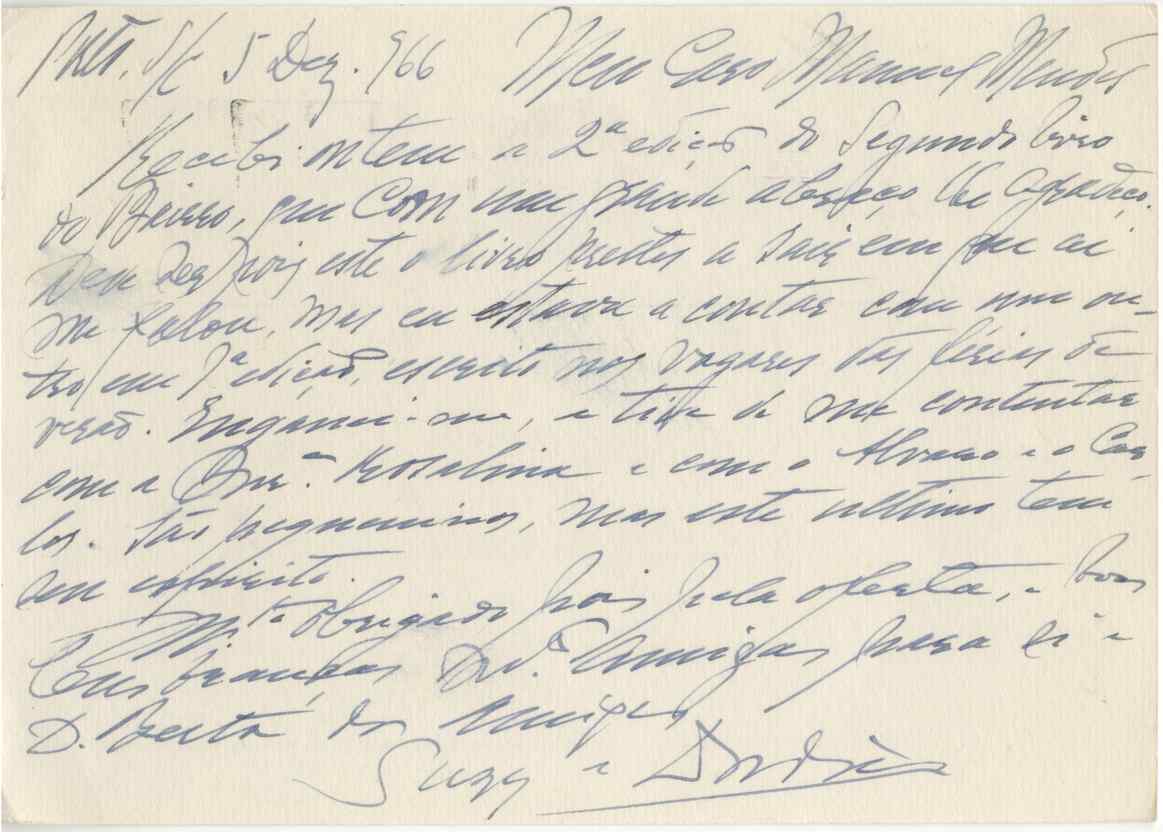 5 Dez. 966 Meu Caro Manuel Mendes
Recebi ontem a 2ª edição do Segundo livro
do Bairro, que com um grande abraço lhe agradeço.
pois este o livro prestes a sair em que aí
me falou, mas eu estava a contar com um ou-
tro em 1ª edição, escrito nos vagares das férias de
verão. Enganei-me, e tive de me contentar
com a Rosalina e com o Alvaro e o Car
los. São pequeninos, mas este ultimo tem
seu espírito.
Mto obrigado pois pela oferta, e boas
lembranças amigas para si e
D. Berta dos amigos
Suzy e